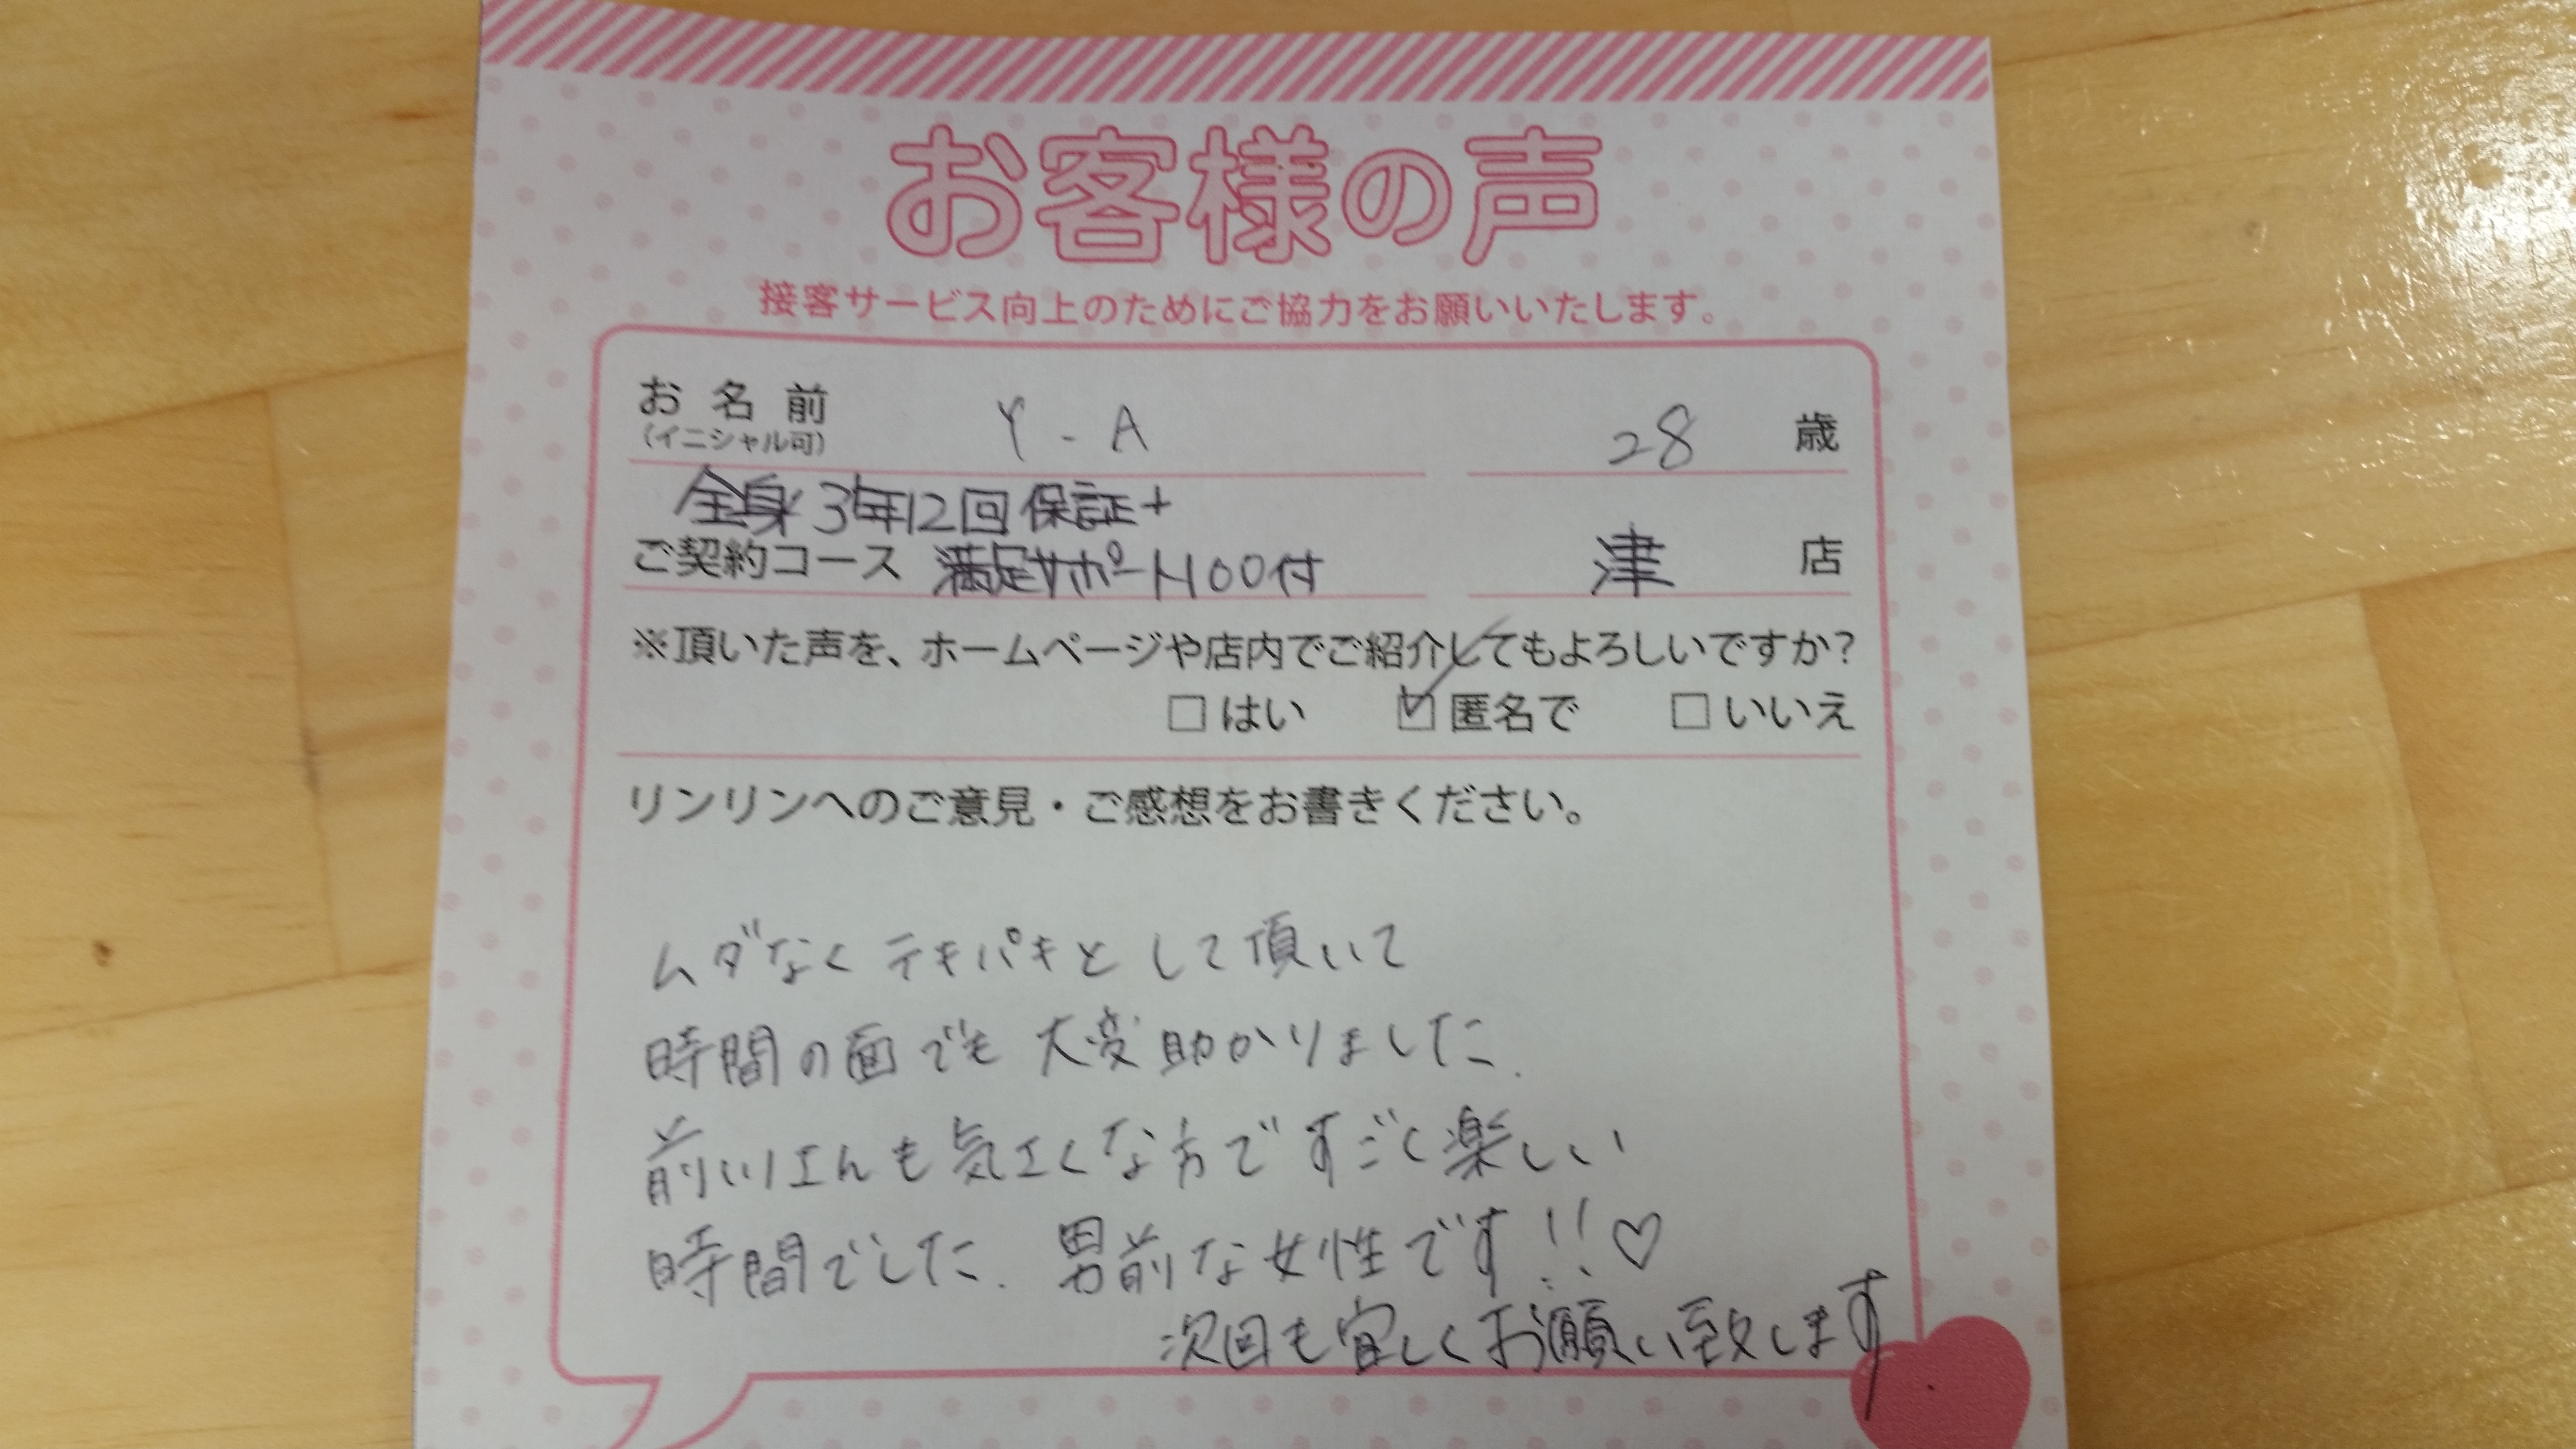 お客様の声
接客サービス向上のためにご協力をお願いいたします。
お名前 Y - A 28 歳
(イニシャル可)
全身3年12回保証+
ご契約コース 満足サポート100付 津 店
※頂いた声を、ホームページや店内でご紹介してもよろしいですか?
□はい ☑匿名で □いいえ
リンリンへのご意見・ご感想をお書きください。
ムダなくテキパキとして頂いて
時間の面でも大変助かりました.
前川さんも気さくな方ですごく楽しい
時間でした. 男前な女性です!!♡
次回も宜しくお願い致します